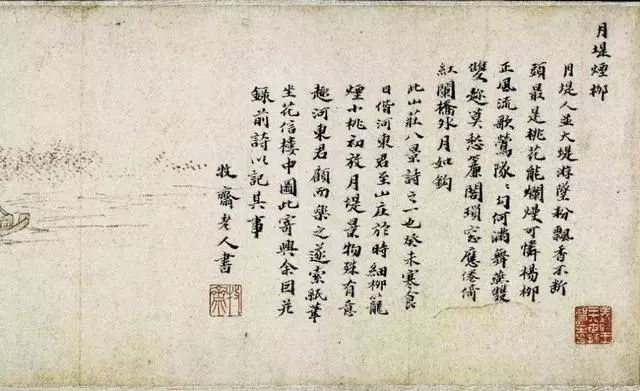 月堤煙柳
月堤人並大堤游墜粉飄香不斷
頭最是桃花能爛熳可憐楊柳
正風流歌鶯隊〻勾何滿舞燕雙
雙趁莫愁簾閣瑣窓應倦倚
紅闌橋外月如鈎
此山莊八景詩之一也癸未寒食
日偕河東君至山庄於時細柳籠
煙小桃初放月堤景物殊有意
趣河東君顧而樂之遂索紙筆
坐花信樓中圖此寄興余因
錄前詩以記其事
牧齋老人書
牧齋